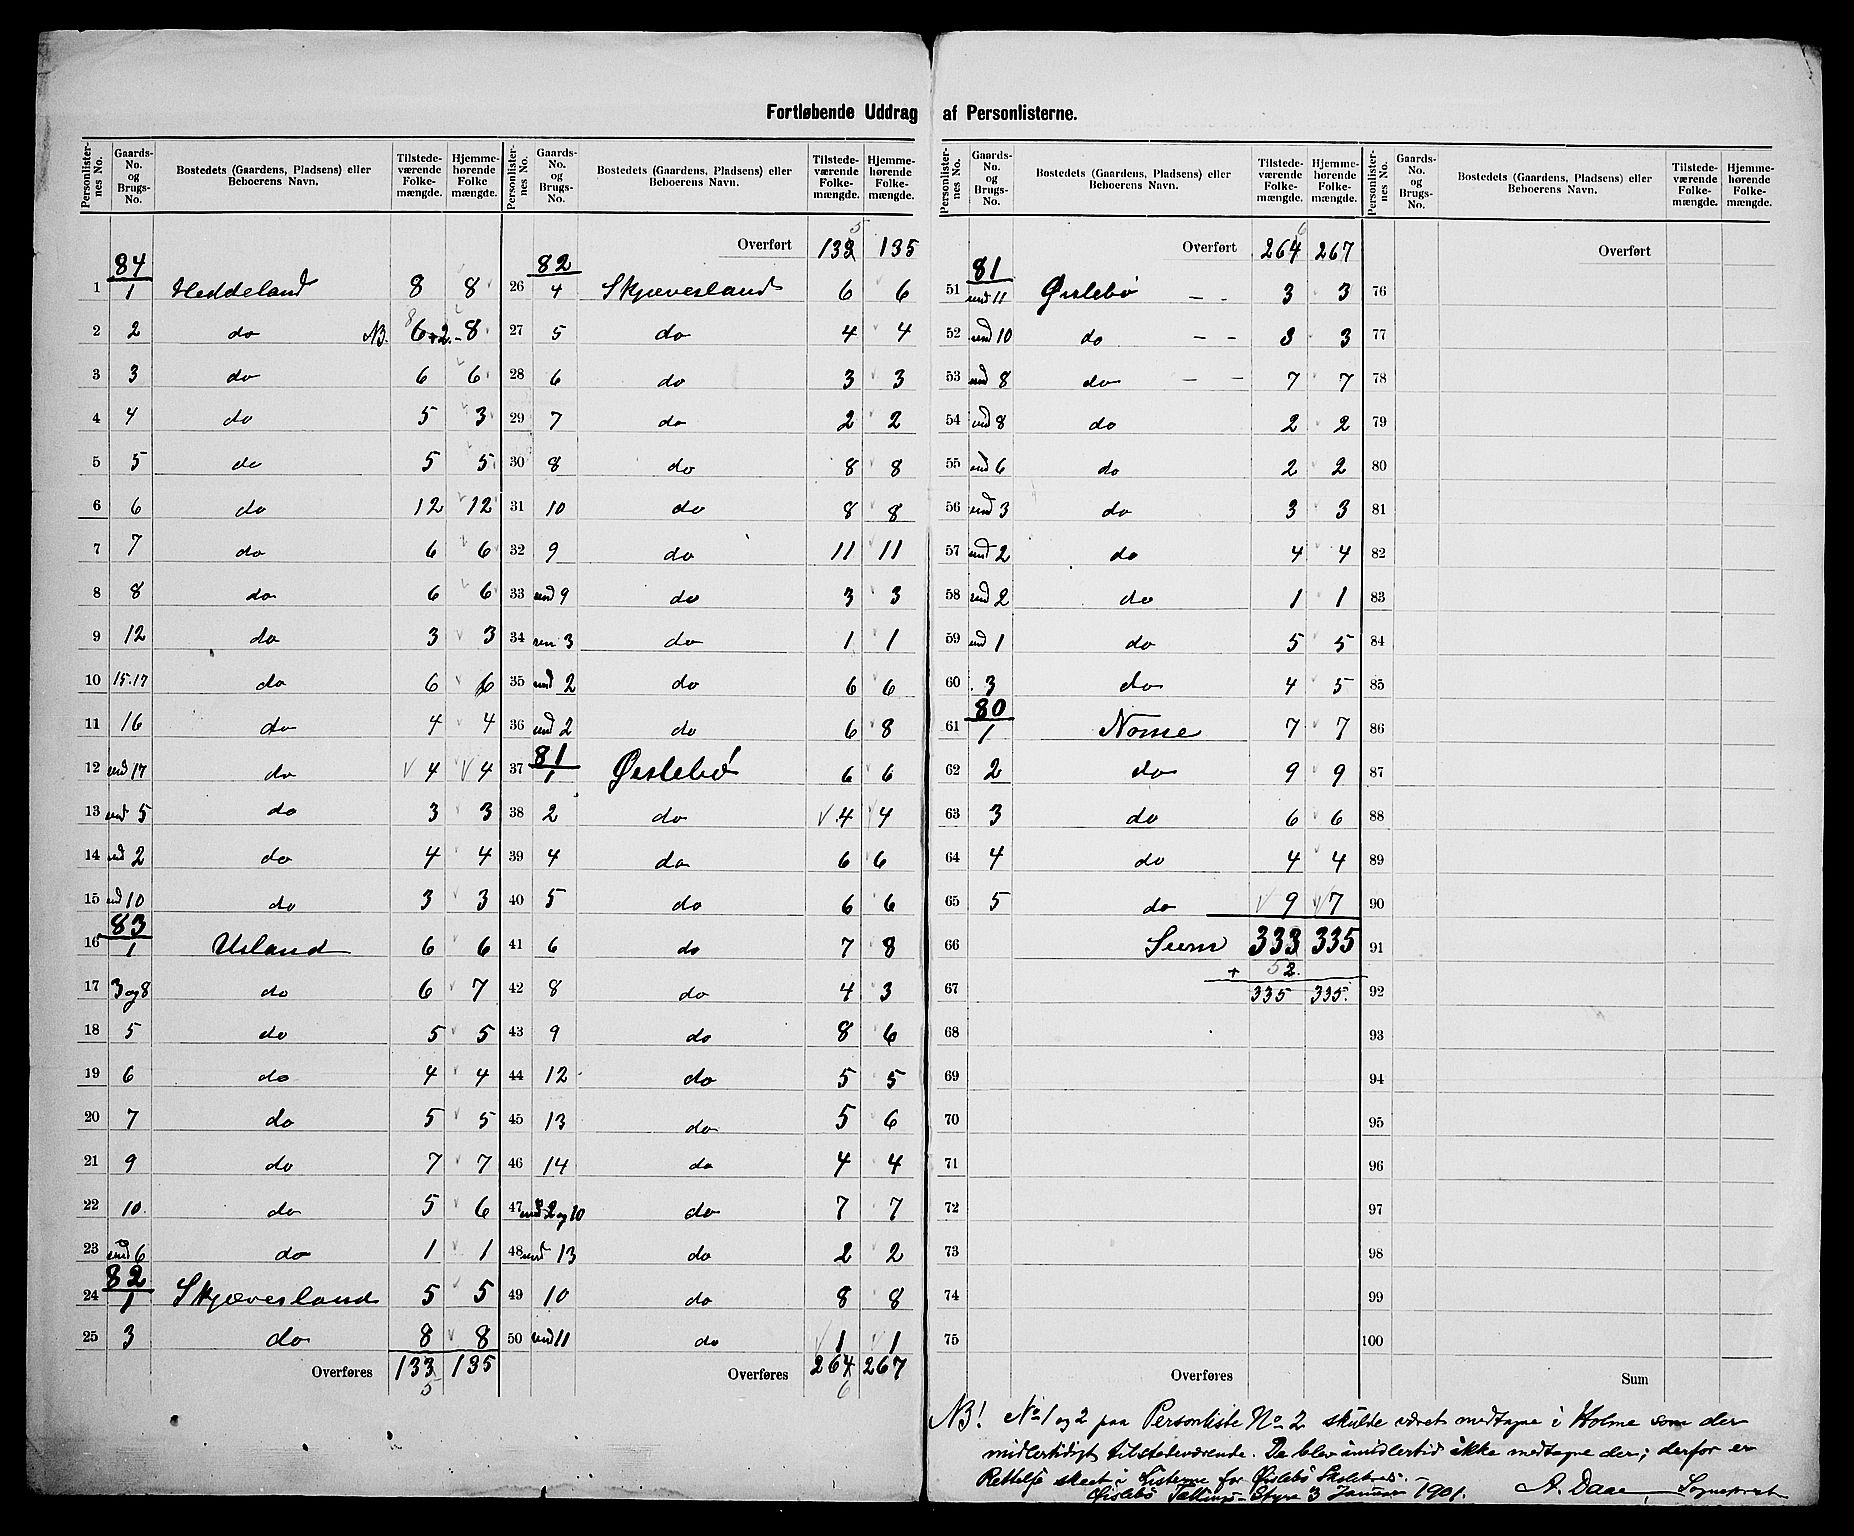 Fortløbende Uddrag af Personlisterne.
Personlister-nes No. | Gaards-No. og Brugs-No. | Bostedets (Gaardens, Pladsens) eller Beboerens Navn. | Tilstede-værende Folke-mængde. | Hjemme-hørende Folke mængde.
84
1 | 1 | Heddeland | 8 | 8
2 | 2 | do NB. | 8 6+2- | 8
3 | 3 | do | 6 | 6
4 | 4 | do | 5 | 3
5 | 5 | do | 5 | 5
6 | 6 | do | 12 | 12
7 | 7 | do | 6 | 6
8 | 8 | do | 6 | 6
9 | 12 | do | 3 | 3
10 | 15.17 | do | 6 | 6
11 | 16 | do | 4 | 4
12 | und 17 | do | 4 | 4
13 | und 5 | do | 3 | 3
14 | und 2 | do | 4 | 4
15 | und 10 | do | 3 | 3
83
16 | 1 | Usland | 6 | 6
17 | 3 og 8 | do | 6 | 7
18 | 5 | do | 5 | 5
19 | 6 | do | 4 | 4
20 | 7 | do | 5 | 5
21 | 9 | do | 7 | 7
22 | 10 | do | 5 | 6
23 | und 6 | do | 1 | 1
82
24 | 1 | Skjævesland | 5 | 5
25 | 3 | do | 8 | 8
Overføres | 133 | 135
5
Personlister-nes No. | Gaards-No. og Brugs-No. | Bostedets (Gaardens, Pladsens) eller Beboerens Navn. | Tilstede-værende Folke-mængde. | Hjemme-hørende Folke-mængde.
5
Overført | 133 | 135
82
26 | 4 | Skjævesland | 6 | 6
27 | 5 | do | 4 | 4
28 | 6 | do | 3 | 3
29 | 7 | do | 2 | 2
30 | 8 | do | 8 | 8
31 | 10 | do | 8 | 8
32 | 9 | do | 11 | 11
33 | und 9 | do | 3 | 3
34 | 3 | do | 1 | 1
35 | und 2 | do | 6 | 6
36 | und 2 | do | 6 | 8
81
37 | 1 | Øislebø | 6 | 6
38 | 2 | do | 4 | 4
39 | 4 | do | 6 | 6
40 | 5 | do | 6 | 6
41 | 6 | do | 7 | 8
42 | 8 | do | 4 | 3
43 | 9 | do | 8 | 6
44 | 12 | do | 5 | 5
45 | 13 | do | 5 | 6
46 | 14 | do | 4 | 4
47 | und 2 og 10 | do | 7 | 7
48 | und 13 | do | 2 | 2
49 | 10 | do | 8 | 8
50 | und 11 | do | 1 | 1
Overføres | 264 | 267
6
Personlister-nes No. | Gaards-No. og Brugs-No. | Bostedets (Gaardens, Pladsens) eller Beboerens Navn. | Tilstede-værende Folke-mængde. | Hjemme-hørende Folke-mængde.
6
Overført | 264 | 267
81
51 | und 11 | Øislebø - - | 3 | 3
52 | und 10 | do - - | 3 | 3
53 | und 8 | do - - | 7 | 7
54 | und 8 | do | 2 | 2
55 | und 6 | do | 2 | 2
56 | und 3 | do | 3 | 3
57 | und 2 | do | 4 | 4
58 | und 2 | do | 1 | 1
59 | und 1 | do | 5 | 5
60 | 3 | do | 4 | 5
80
61 | 1 | Nome | 7 | 7
62 | 2 | do | 9 | 9
63 | 3 | do | 6 | 6
64 | 4 | do | 4 | 4
65 | 5 | do | 9 | 7
66 | Sum | 333 | 335
+ 52
67 | 335 | 335.
68
69
70
71
72
73
74
75
Overføres
Personlister-nes No. | Gaards-No. og Brugs-No. | Bostedets (Gaardens, Pladsens) eller Beboerens Navn. | Tilstede-værende Folke-mængde. | Hjemme-hørende Folke-mængde.
Overført
76
77
78
79
80
81
82
83
84
85
86
87
88
89
90
91
92
93
94
95
96
97
98
99
100
Sum
NB! No 1 og 2 paa Personliste No 2 skulde været medtagne i Holme som der
midlertidigt tilstedeværende. De blev imidlertid ikke medtagne der; derfor er
Rettelse skeet i Listerne for Øislebø Skolekreds.
Øislebø Tællings-Styre 3 Januar 1901. A. Daae, Sogneprest